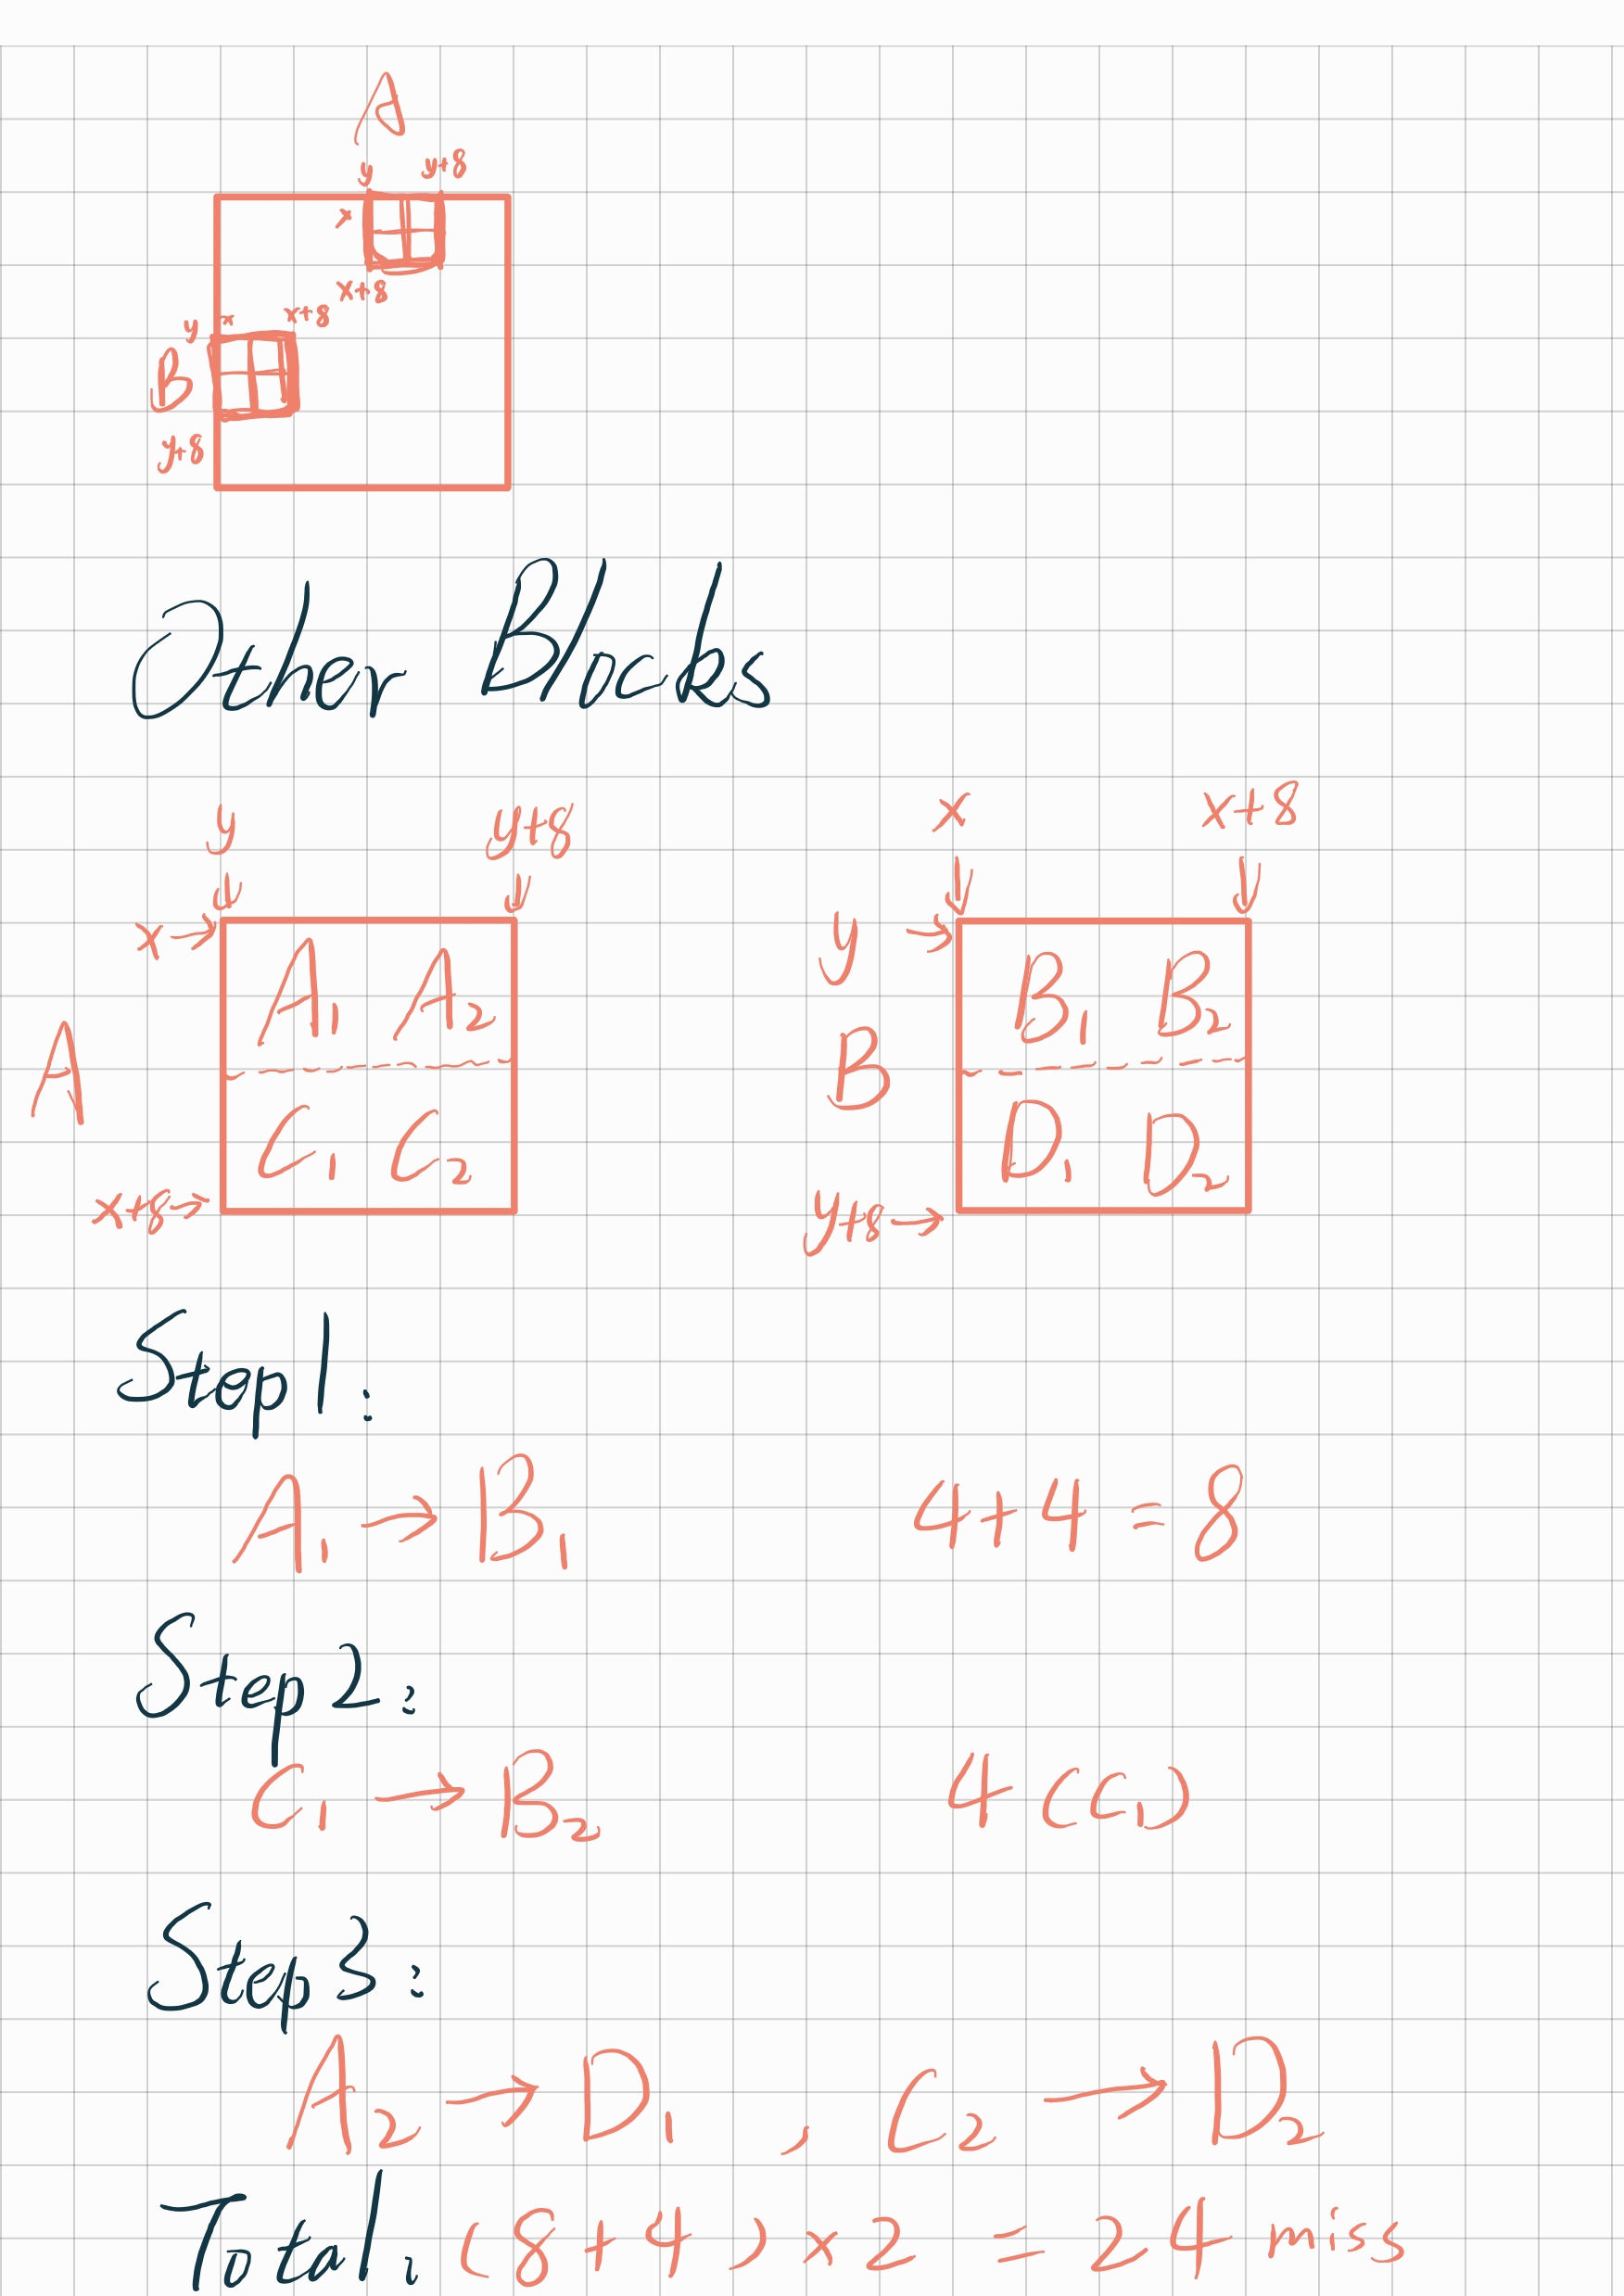 A
y y+8
x
x+8
y x x+8
B
y+8
Other Blocks
y y+8 x x+8
x → y →
A₁ A₂ B₁ B₂
A B
C₁ C₂ D₁ D₂
x+8→ y+8 →
Step 1:
A₁ → B₁ 4+4=8
Step 2:
C₁ → B₂ 4(C₁)
Step 3:
A₂ → D₁ , C₂ → D₂
Total: (8+4)×2 = 24 miss